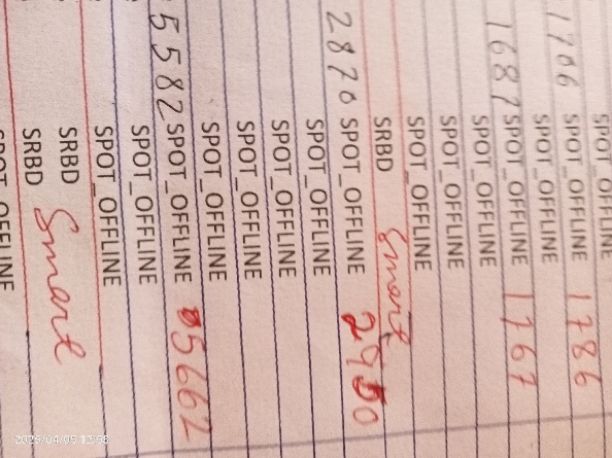 SPOT_OFFLINE
1706 SPOT_OFFLINE 1786
SPOT_OFFLINE
1687 SPOT_OFFLINE 1767
SPOT_OFFLINE
SPOT_OFFLINE
SPOT_OFFLINE
SRBD Smart
2870 SPOT_OFFLINE 2950
SPOT_OFFLINE
SPOT_OFFLINE
SPOT_OFFLINE
SPOT_OFFLINE
5582 SPOT_OFFLINE 5662
SPOT_OFFLINE
SPOT_OFFLINE
SRBD
SRBD Smart
SPOT_OFFLINE